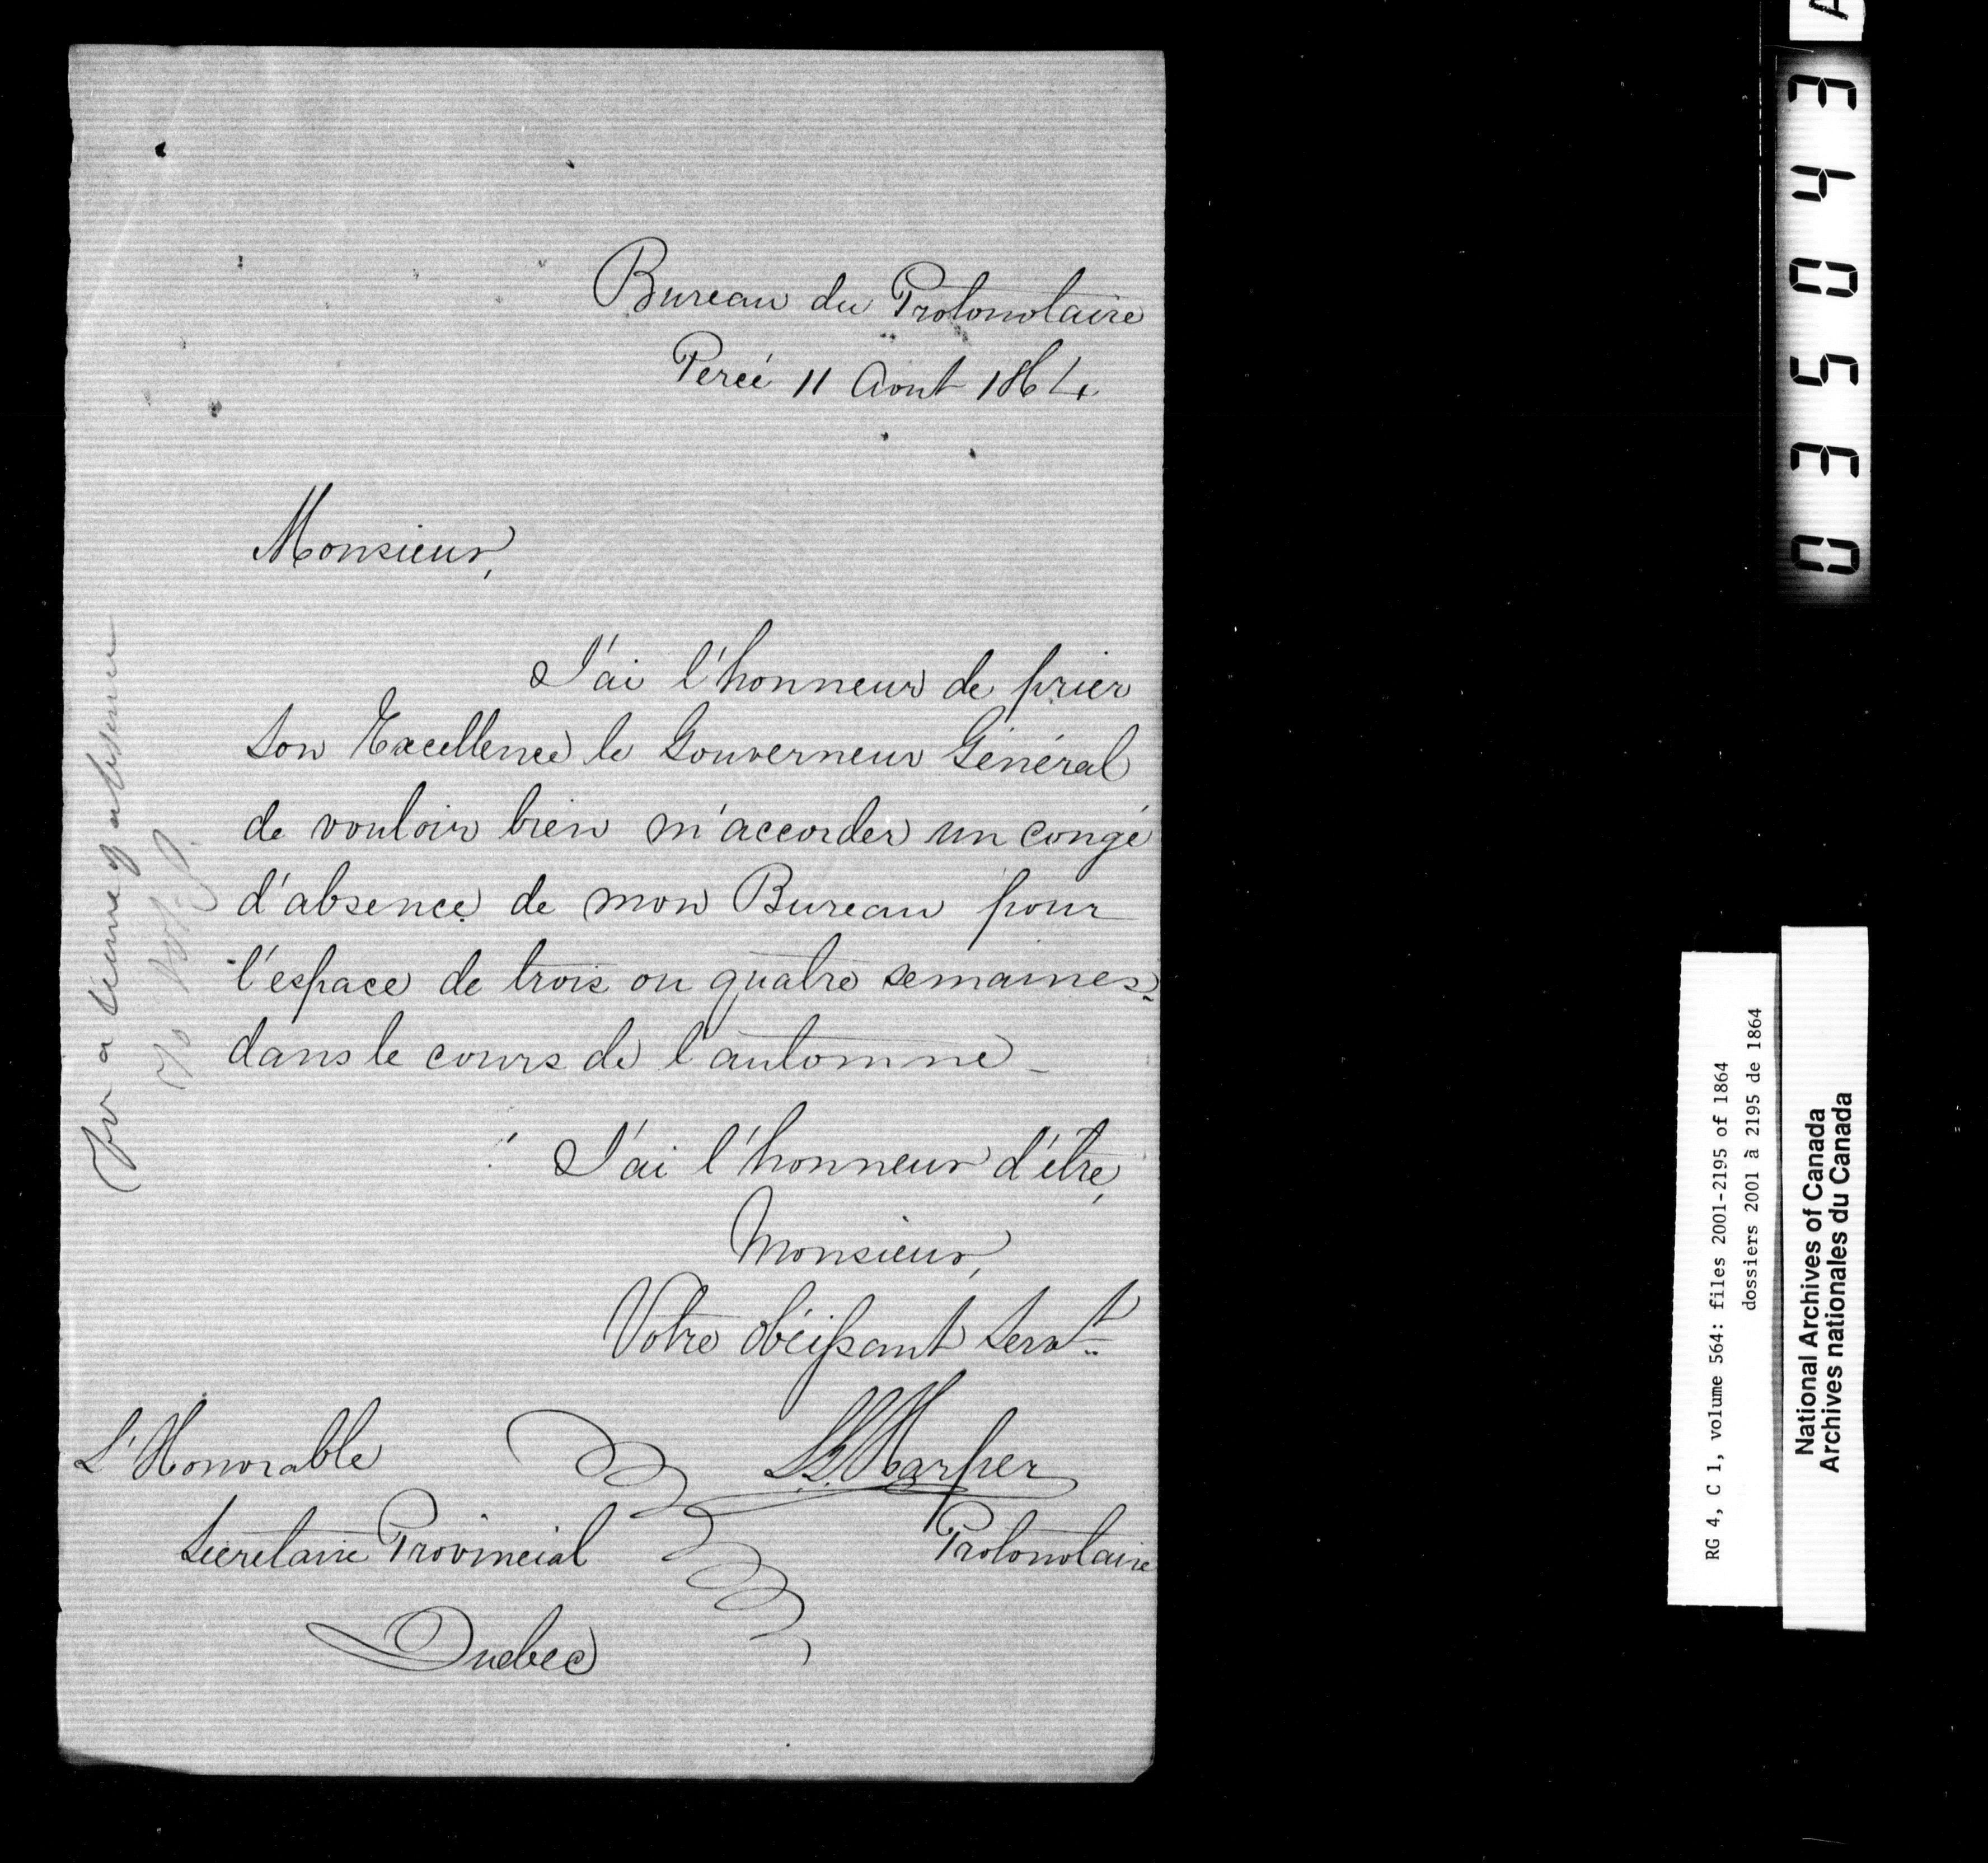 Bureau du Protonotaire
Percé 11 Aout 1864
Monsieur,
J'ai l'honneur de prier
Son Excellence le Gouverneur Général
de vouloir bien m'accorder un congé
d'absence de mon Bureau pour
l'espace de trois ou quatre semaines
dans le cours de l'automne –
J'ai l'honneur d'être,
Monsieur,
Votre obéissant Servt
L'Honorable
Harper
Secretaire Provincial
Protonotaire
Quebec
For a of absence
035043
RG 4, C 1, volume 564: files 2001-2195 of 1864
dossiers 2001 à 2195 de 1864
National Archives of Canada
Archives nationales du Canada